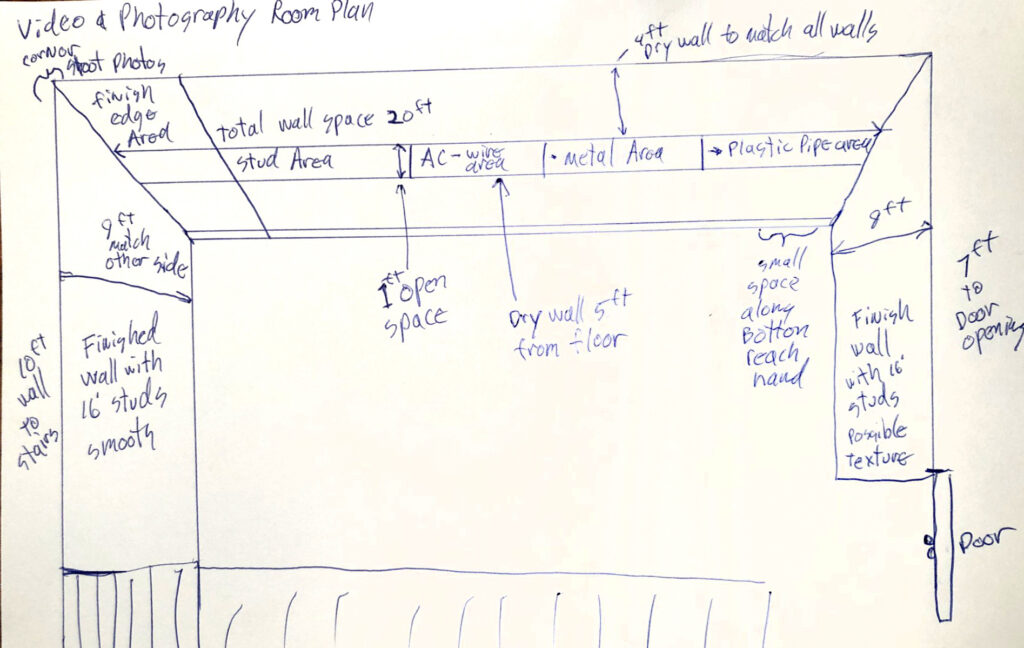 Video & Photography Room Plan
cornor
shoot photos
4ft
Dry wall to match all walls
finish
edge
Area
total wall space 20ft
stud Area
AC-wire
area
• metal Area
Plastic Pipe area
9ft
match
other side
8ft
1ft open
space
Dry wall 5ft
from floor
small
space
along
Bottom
reach
hand
7ft
to
Door
opening
10ft
wall
to
stairs
Finished
wall with
16' studs
smooth
Finish
wall
with 16'
studs
possible
texture
Door